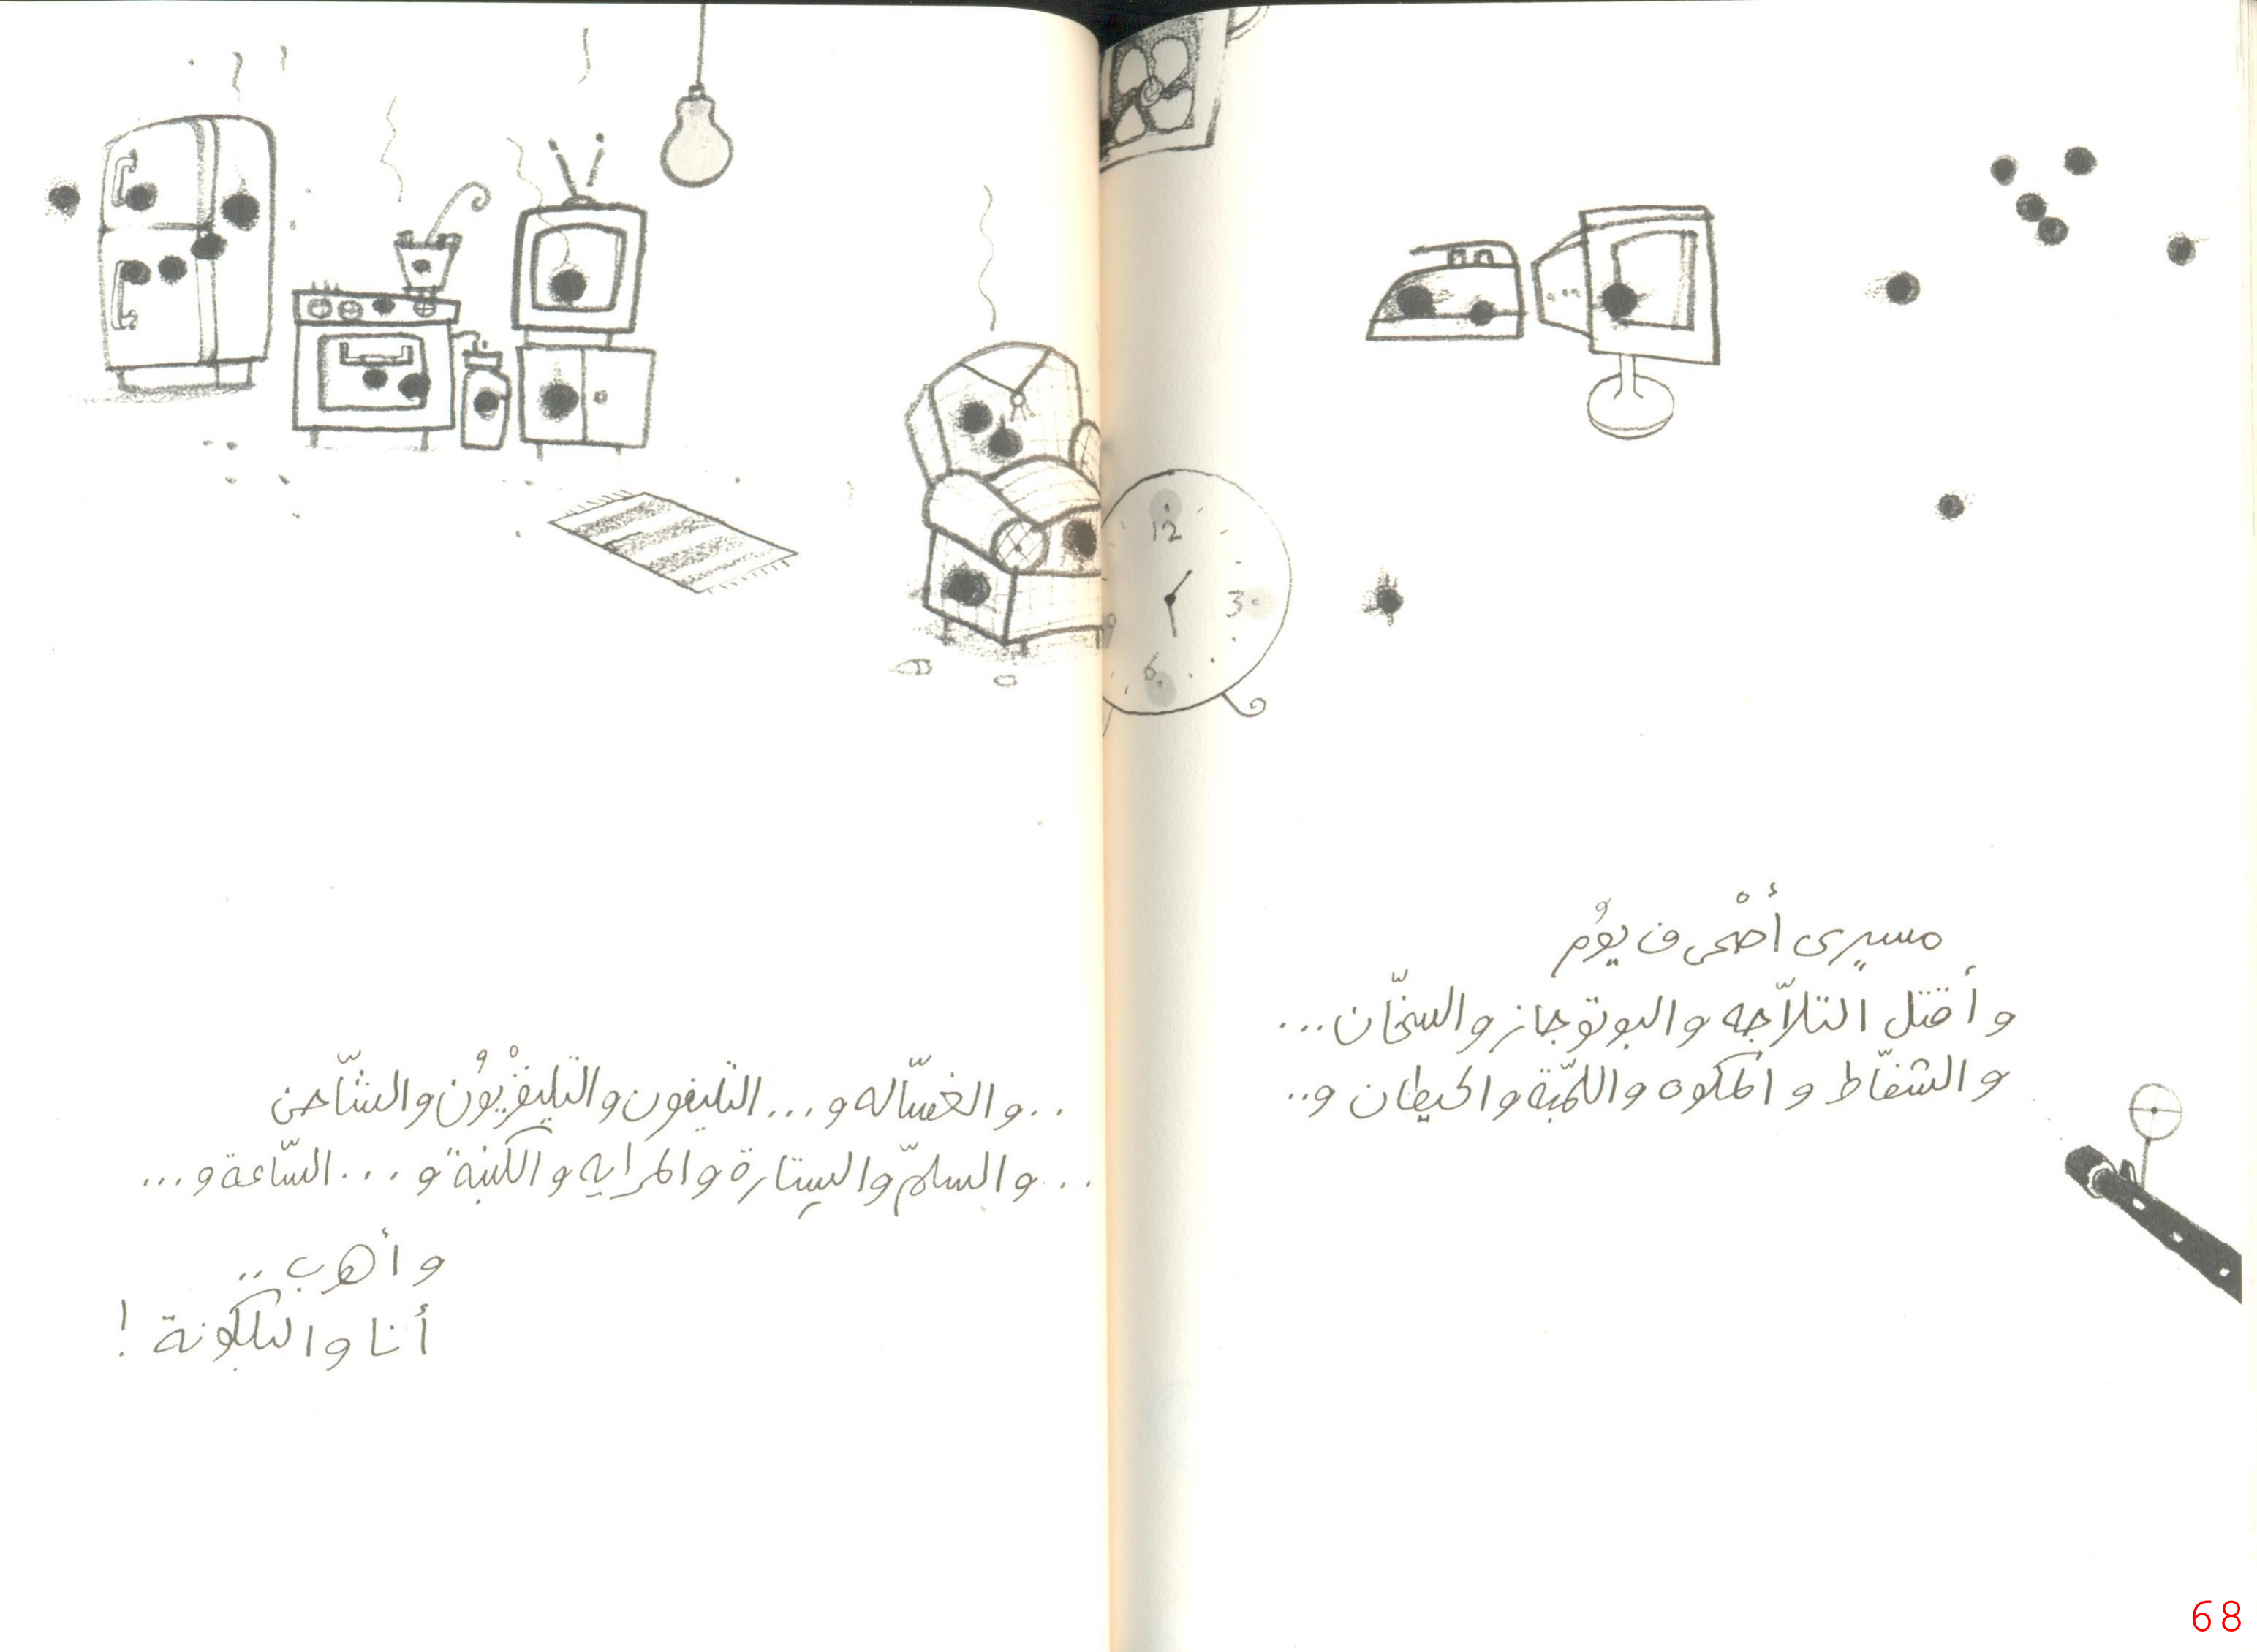 مسيرى أصْحى ف يوُم
و أقتل التلاّجه والبوتوجاز والسخّان...
والشفّاط والمكوه واللمّبة والحيطان و..
..والغسّاله و...التليفون والتليفزْيوُن والشّاحن
..والسلمّ والسِتارة والمرايه والكنبة و...السّاعة و...
وأهرب..
أنا والبلكونة !
12
3
6
9
68